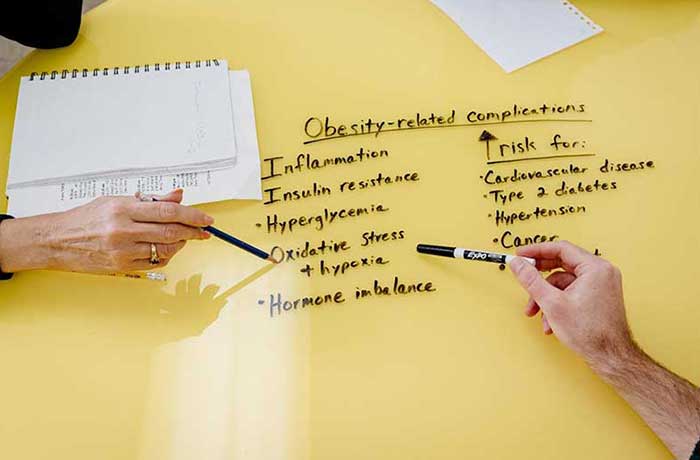 Obesity-related complications
Inflammation
Insulin resistance
• Hyperglycemia
Oxidative Stress
+ hypoxia
• Hormone imbalance
↑ risk for:
• Cardiovascular disease
• Type 2 diabetes
• Hypertension
• Cancer
EXPO